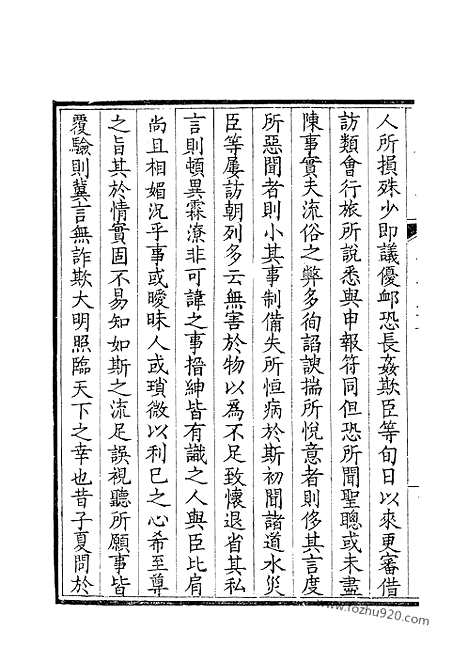 人所損殊少即議優䘏恐長姦欺臣等旬日以來更審借
訪類會行旅所說悉與申報符同但恐所聞聖聰或未盡
陳事實夫流俗之弊多徇諂諛揣所悅意者則侈其言度
所惡聞者則小其事制備失所恒病於斯初聞諸道水災
臣等屢訪朝列多云無害於物以爲不足致懷退省其私
言則頓異霖潦非可諱之事搢紳皆有識之人與臣比肩
尚且相媚況乎事或曖昧人或瑣微以利已之心希至尊
之旨其於情實固不易知如斯之流足誤視聽所願事皆
覆驗則冀言無詐欺大明照臨天下之幸也昔子夏問於
www.fozhu920.com